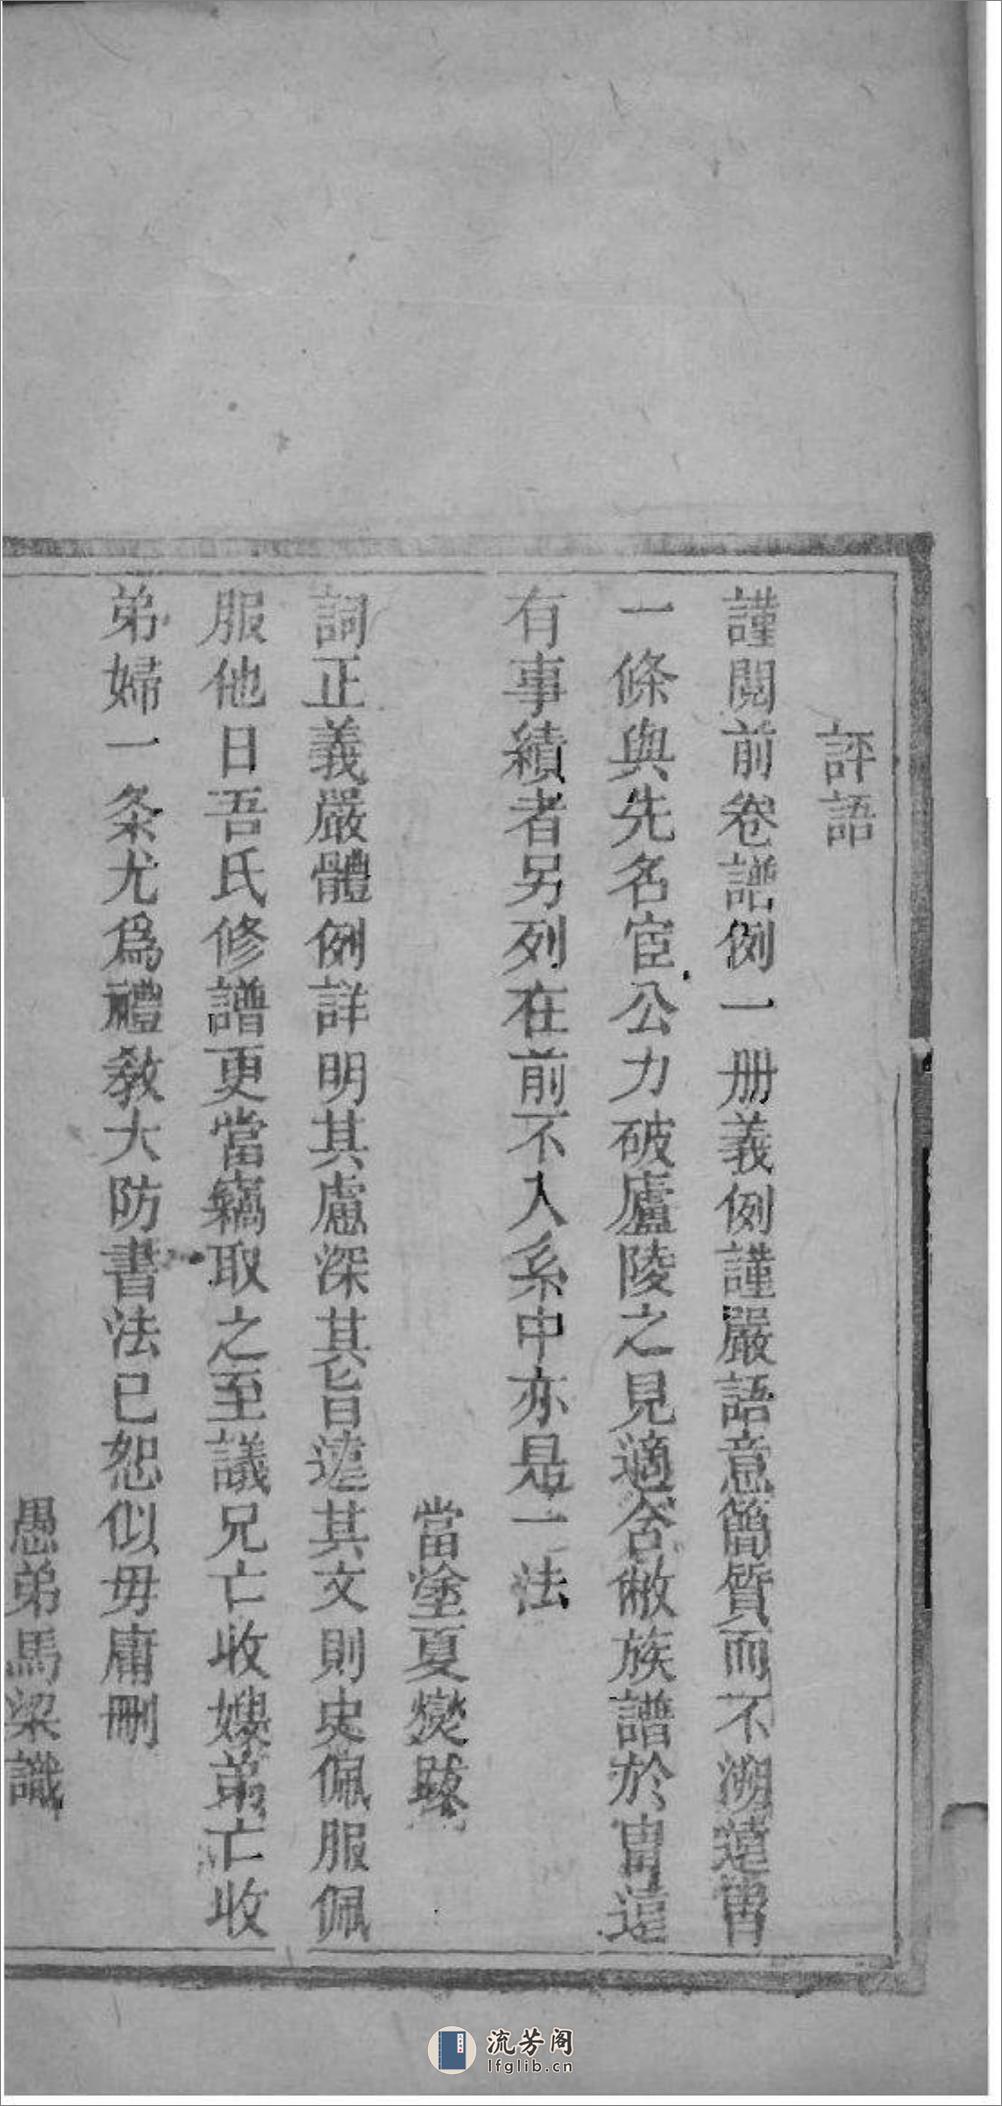 評語
謹閱前卷譜例一册義例謹嚴語意簡質而不溯遠冑
一條與先名宦公力破廬陵之見適合敝族譜於冑遠
有事績者另列在前不入系中亦是一法
當塗夏燮跋
詞正義嚴體例詳明其慮深其旨遠其文則史佩服佩
服他日吾氏修譜更當竊取之至議兄亡收嫂弟亡收
弟婦一条尤爲禮教大防書法已恕似毋庸刪
愚弟馬梁識
流芳阁
lfglib.cn